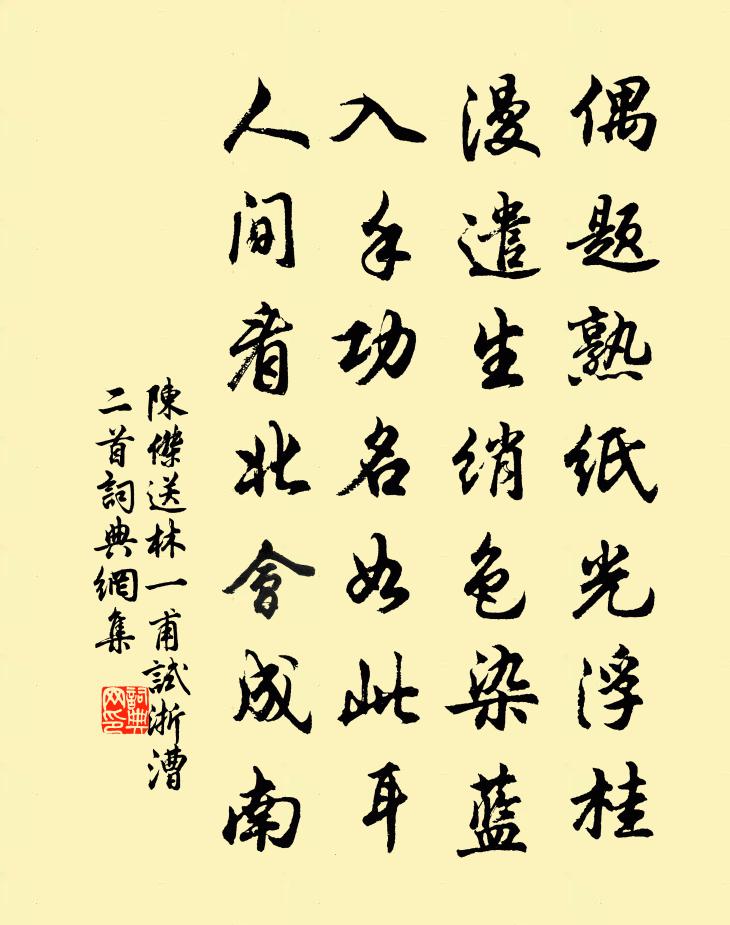 偶题熟紙光浮桂
漫遣生綃色染藍
入手功名如此耳
人间看北會成南
陳傑送林一甫試浙漕
二首詞典網集
詞典网印